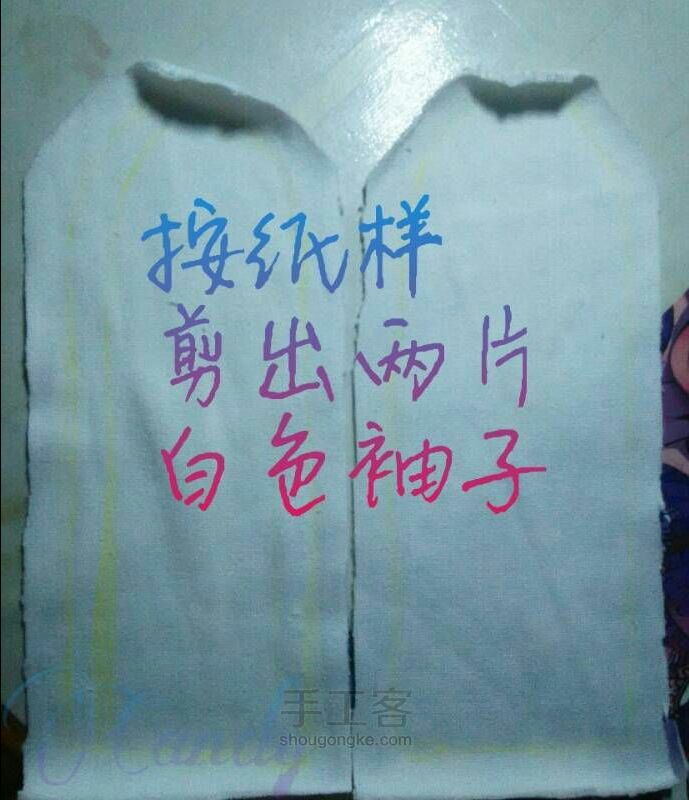 按纸样
剪出两片
白色袖子
手工客
shougongke.com
Candy